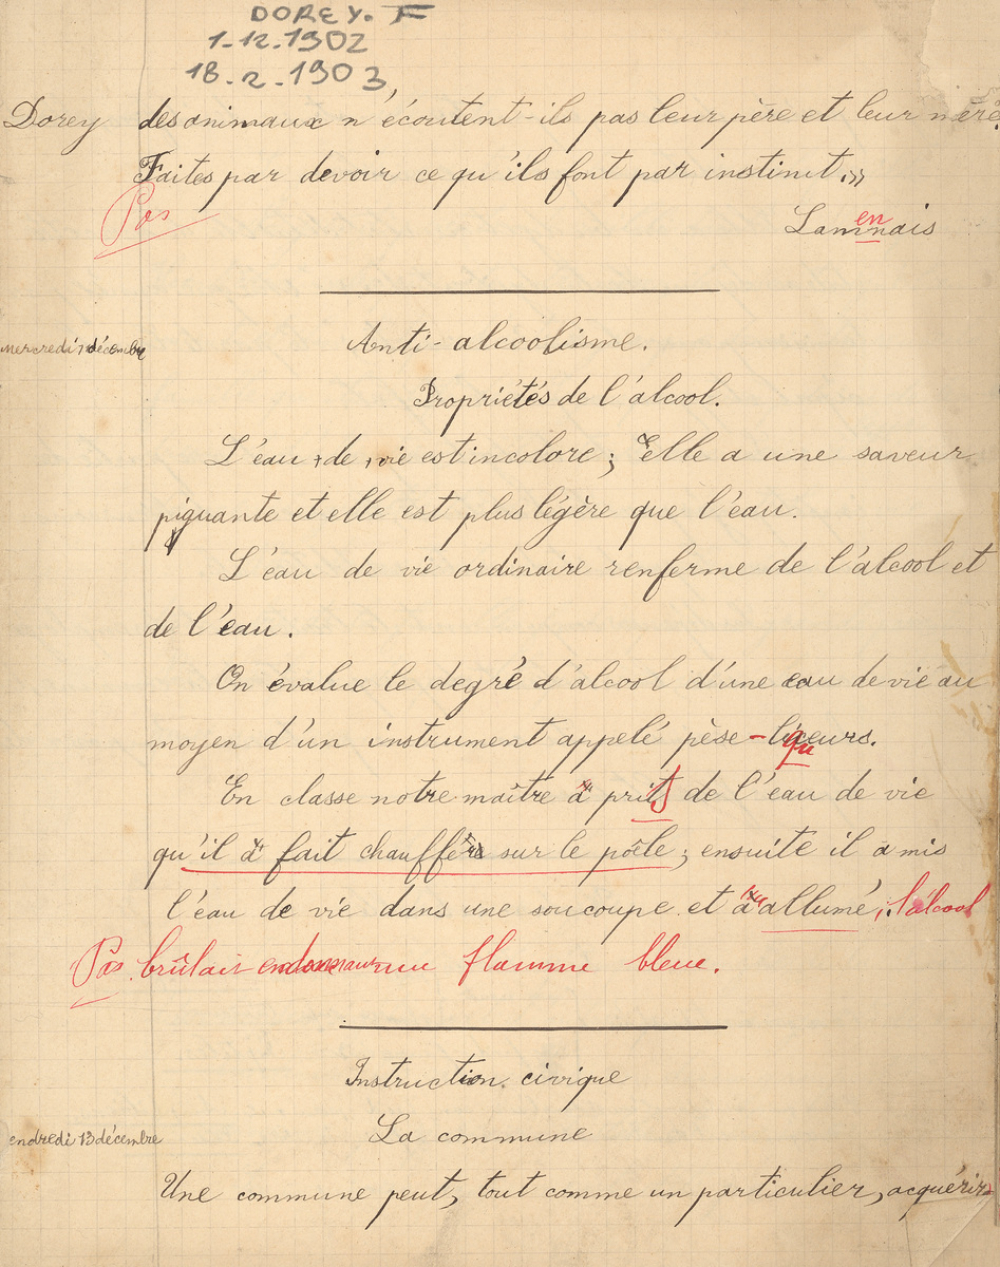 DOREY. F
1-12-1902
18-2-1903
Dorey des animaux n'écoutent-ils pas leur père et leur mère?
Faites par devoir ce qu'ils font par instinct.»
Lamennais
mercredi décembre
Anti-alcoolisme.
Propriétés de l'alcool.
L'eau de vie est incolore; elle a une saveur
piquante et elle est plus légère que l'eau.
L'eau de vie ordinaire renferme de l'alcool et
de l'eau.
On évalue le degré d'alcool d'une eau de vie au
moyen d'un instrument appelé pèse-liqueurs.
En classe notre maître a pris de l'eau de vie
qu'il a fait chauffer sur le poêle; ensuite il a mis
l'eau de vie dans une soucoupe et a allumé; l'alcool
Pas brûlait en donnant une flamme bleue.
Instruction civique
endredi 13 décembre
La commune
Une commune peut, tout comme un particulier, acquérir